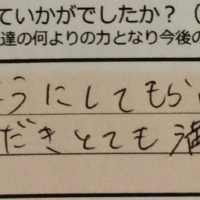 ていかがでしたか？（
達の何よりの力となり今後の
うにしてもら
だきとても満